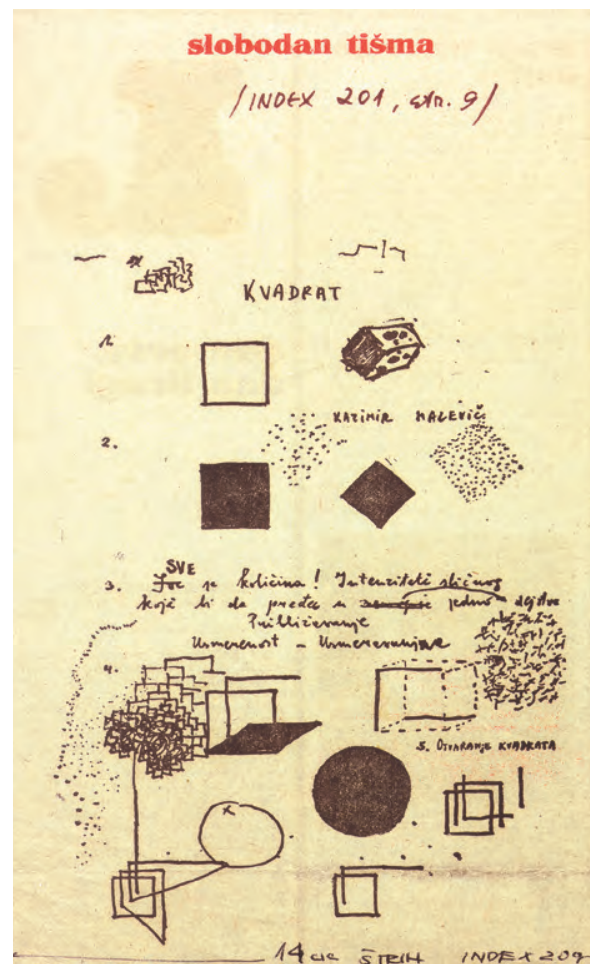 slobodan tišma
/INDEX 201, str. 9/
KVADRAT
1.
KAZIMIR MALEVIČ
2.
SVE
3. je količina! Intenziteti sličnog
koji bi da pređu u jedno dejstvo
Približavanje
Usmerenost - Usmeravanje
4.
5. OTVARANJE KVADRATA
X
14 cic ŠTRIH INDEX 209